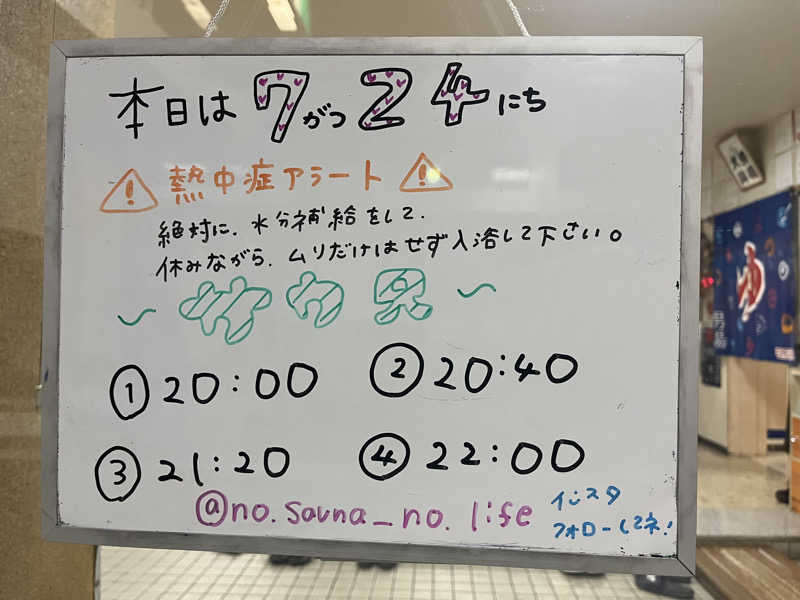 本日は7がつ24にち
熱中症アラート
絶対に、水分補給をして、
休みながら、ムリだけはせず入浴して下さい。
~サウ男~
①20:00 ②20:40
③21:20 ④22:00
@no.sauna_no.life
インスタ
フォローしてネ!
ゆ